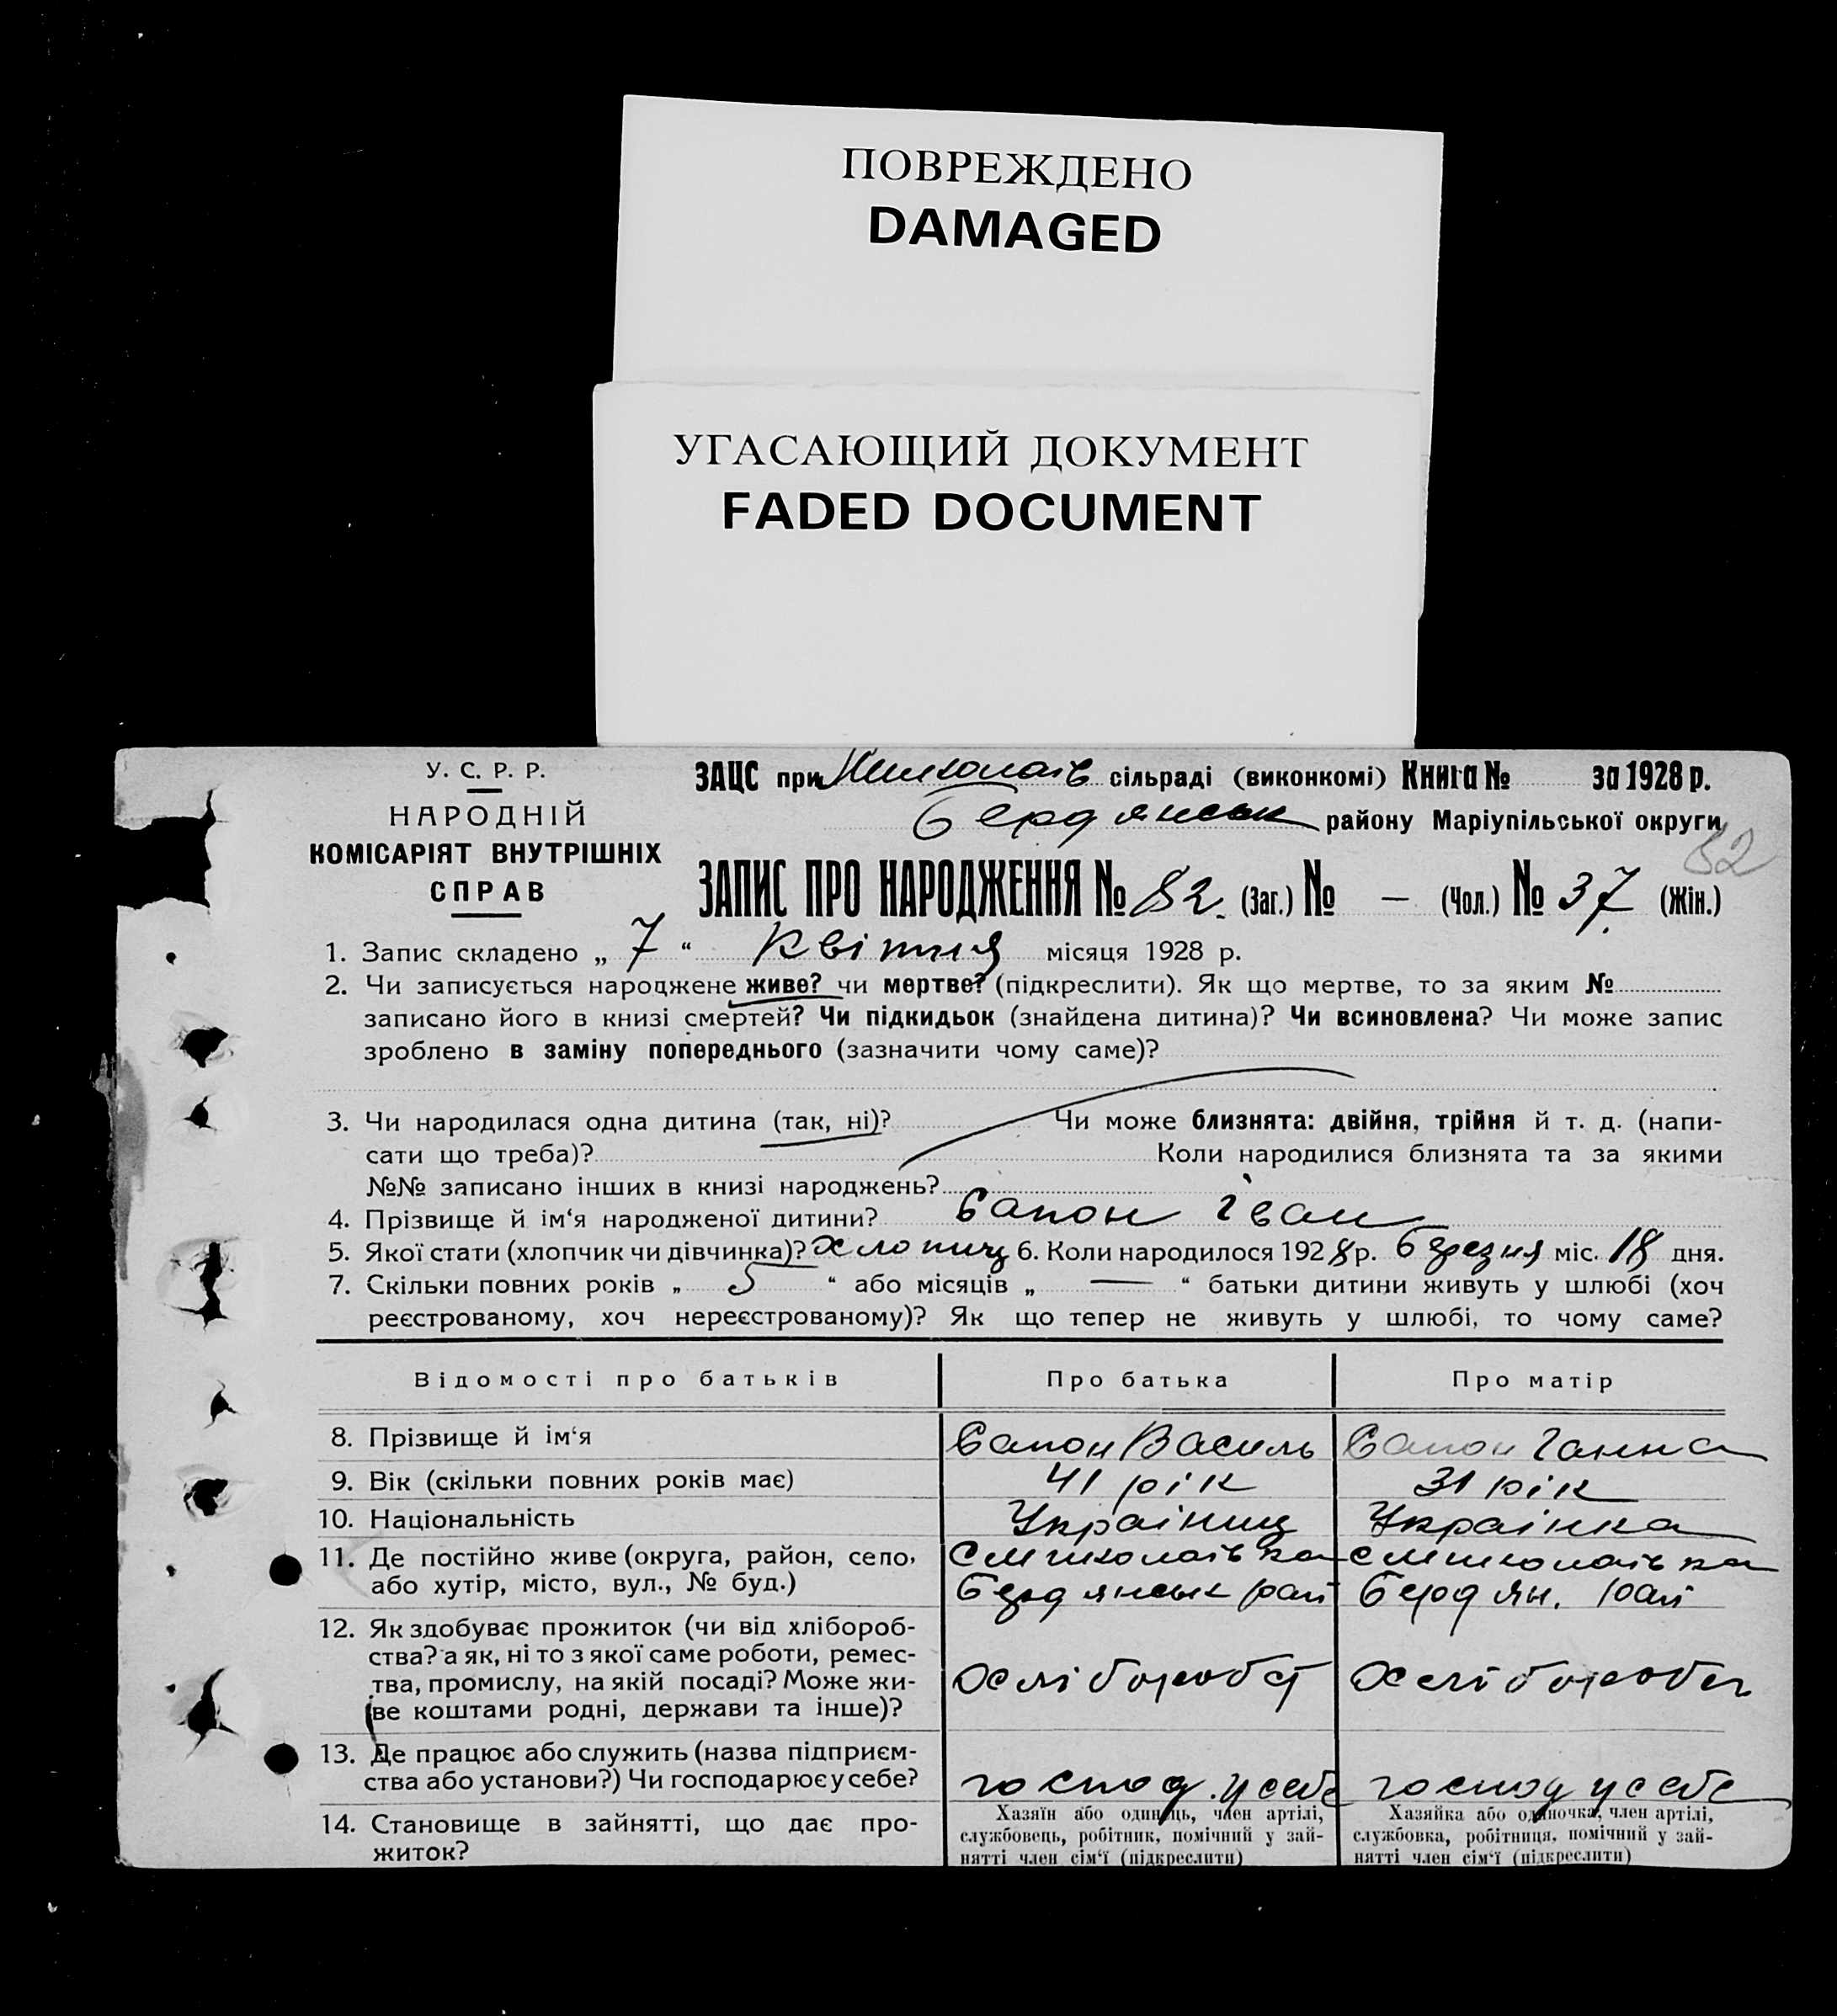 ПОВРЕЖДЕНО
DAMAGED
УГАСАЮЩИЙ ДОКУМЕНТ
FADED DOCUMENT
У. С. Р. Р.
НАРОДНІЙ
КОМІСАРІЯТ ВНУТРІШНІХ
СПРАВ
ЗАЦС при Миколаїв сільраді (виконкомі) Книга № за 1928 р.
Бердянськ району Маріупільської округи
82
ЗАПИС ПРО НАРОДЖЕННЯ № 82. (Заг.) № — (Чол.) № 37. (Жін.)
1. Запис складено „ 7 “ Квітня місяця 1928 р.
2. Чи записується народжене живе? чи мертве? (підкреслити). Як що мертве, то за яким №
записано його в книзі смертей? Чи підкидьок (знайдена дитина)? Чи всиновлена? Чи може запис
зроблено в заміну попереднього (зазначити чому саме)?
3. Чи народилася одна дитина (так, ні)? Чи може близнята: двійня, трійня й т. д. (напи-
сати що треба)? Коли народилися близнята та за якими
№№ записано інших в книзі народжень?
4. Прізвище й ім‘я народженої дитини? Сапон Іван
5. Якої стати (хлопчик чи дівчинка)? Хлопиць 6. Коли народилося 1928 р. Березня міс. 18 дня.
7. Скільки повних років „ 5 “ або місяців „ — “ батьки дитини живуть у шлюбі (хоч
реєстрованому, хоч нереєстрованому)? Як що тепер не живуть у шлюбі, то чому саме?
Відомості про батьків Про батька Про матір
8. Прізвище й ім‘я Сапон Василь Сапон Ганна
9. Вік (скільки повних років має) 41 рік 31 рік
10. Національність Україниц Українка
11. Де постійно живе (округа, район, село, С Миколаівка с Миколаівка
або хутір, місто, вул., № буд.) Бердянськ рай Бердян. рай
12. Як здобуває прожиток (чи від хлібороб-
ства? а як, ні то з якої саме роботи, ремес-
тва, промислу, на якій посаді? Може жи-
ве коштами родні, держави та інше)?
Хлібороб
13. Де працює або служить (назва підприєм-
ства або установи?) Чи господарює у себе? господ. у себе господ у себе
14. Становище в зайнятті, що дає про-
житок?
Хазяїн або одинець, член артілі,
службовець, робітник, помічний у зай-
нятті член сім‘ї (підкреслити)
Хазяйка або одиночка, член артілі,
службовка, робітниця, помічний у зай-
нятті член сім‘ї (підкреслити)